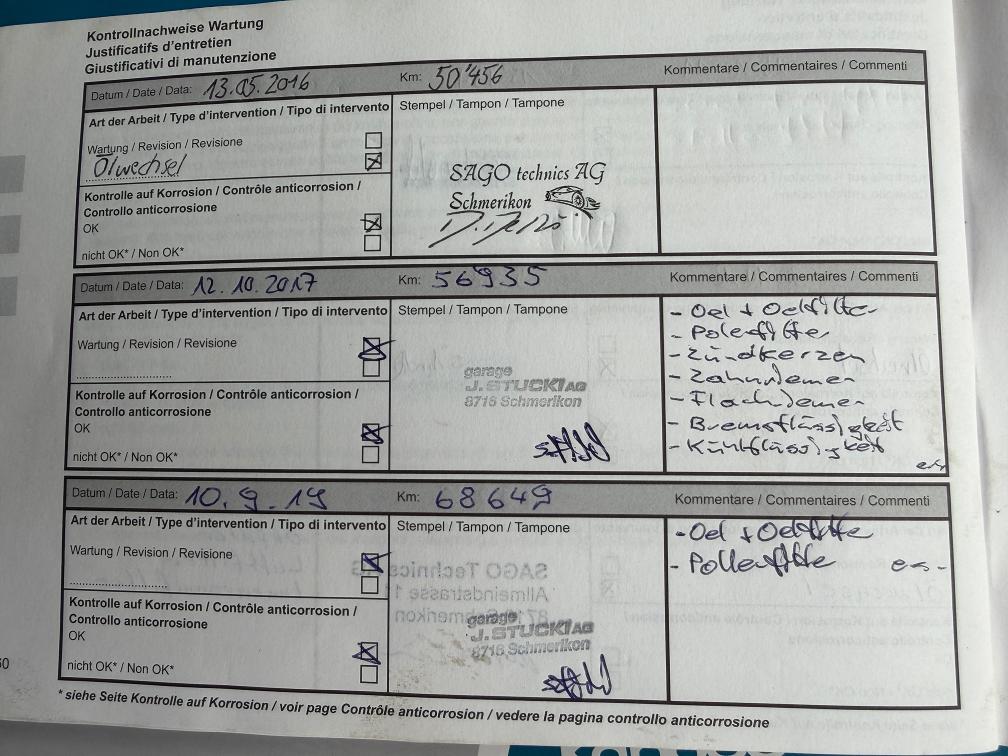 Kontrollnachweise Wartung
Justificatifs d'entretien
Giustificativi di manutenzione
Datum / Date / Data: 13.05.2016 Km: 50'456 Kommentare / Commentaires / Commenti
Art der Arbeit / Type d'intervention / Tipo di intervento Stempel / Tampon / Tampone
Wartung / Revision / Revisione
Ölwechsel
SAGO technics AG
Schmerikon
Kontrolle auf Korrosion / Contrôle anticorrosion /
Controllo anticorrosione
OK
nicht OK* / Non OK*
Datum / Date / Data: 12.10.2017 Km: 56935 Kommentare / Commentaires / Commenti
Art der Arbeit / Type d'intervention / Tipo di intervento Stempel / Tampon / Tampone
- Oel + Oelfilter
- Polenfilter
- Zündkerzen
- Zahnriemen
- Flachriemen
- Bremsflüssigkeit
- Kühlflüssigkeit
Wartung / Revision / Revisione
garage
J. STUCKI AG
8716 Schmerikon
Kontrolle auf Korrosion / Contrôle anticorrosion /
Controllo anticorrosione
OK
nicht OK* / Non OK*
Datum / Date / Data: 10.9.19 Km: 68649 Kommentare / Commentaires / Commenti
Art der Arbeit / Type d'intervention / Tipo di intervento Stempel / Tampon / Tampone
- Oel + Oelfilter
- Pollenfilter
Wartung / Revision / Revisione
garage
J. STUCKI AG
8716 Schmerikon
Kontrolle auf Korrosion / Contrôle anticorrosion /
Controllo anticorrosione
OK
nicht OK* / Non OK*
* siehe Seite Kontrolle auf Korrosion / voir page Contrôle anticorrosion / vedere la pagina controllo anticorrosione